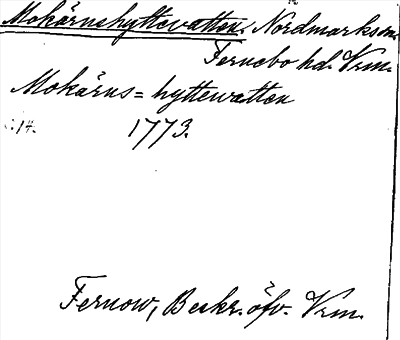 Mokärnshyttevatten. Nordmarks sn.
Fernebo hd. Vrm.
Mokärns=hyttewatten
:14. 1773.
Fernow, Beskr. öfv. Vrm.